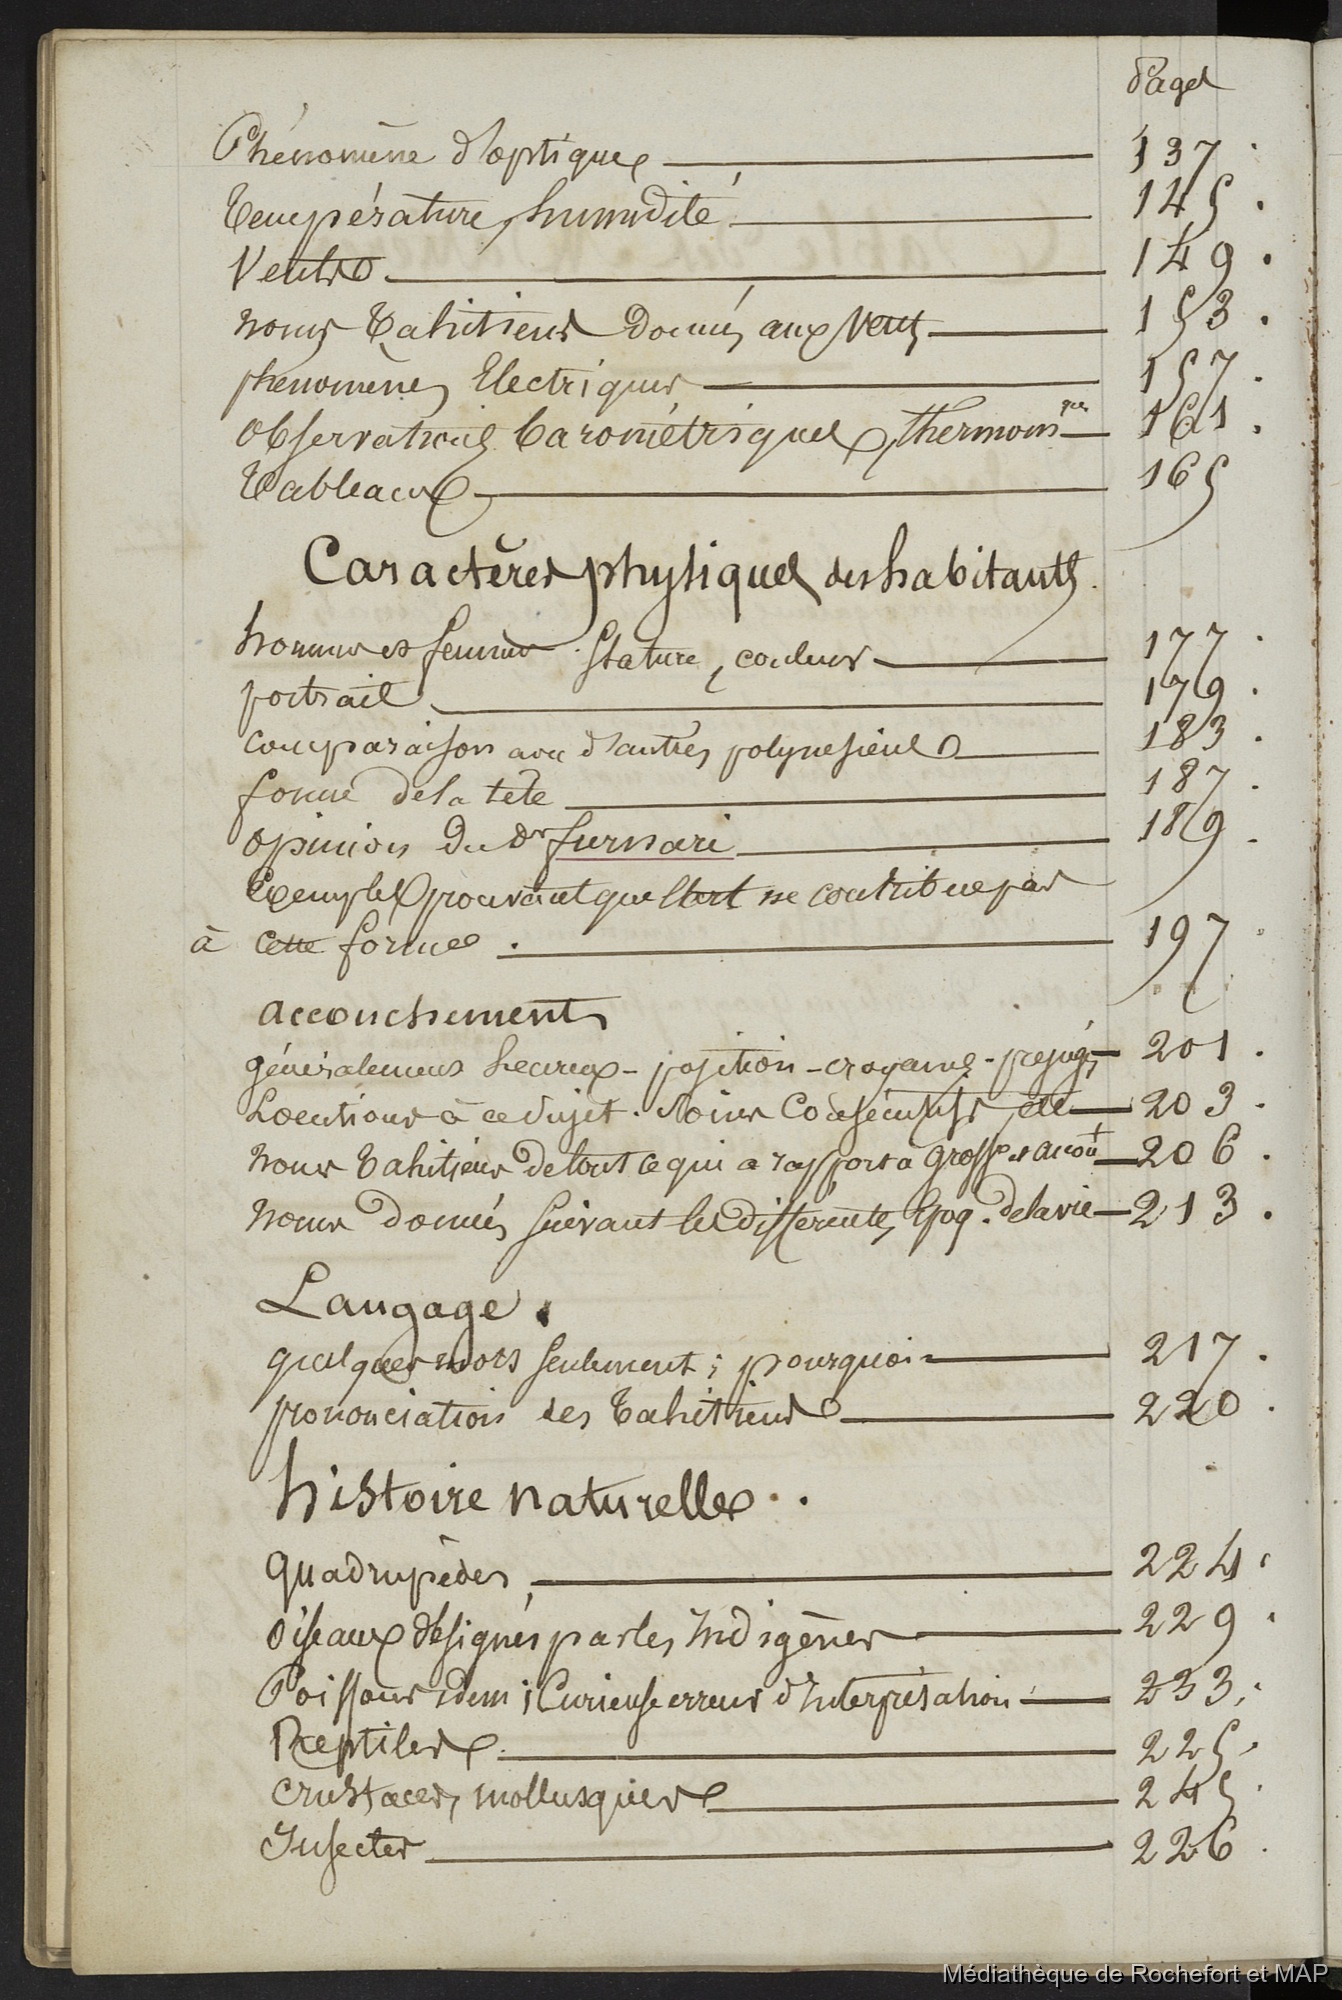 Pages
Phénomène d'optique 137
Température, humidité 145
Vents 149
noms Tahitiens donnés aux vents 153
phénomènes Electriques 157
observations barométriques, thermom ques 161
Tableaux 165
Caractères physiques des habitants
hommes et femmes. Stature, couleur 177
portrait 179
comparaison avec d'autres polynesiens 183
forme de la tête 187
opinion du Dr furnari 189
Exemples prouvant que l'art ne contribue pas
à cette forme 197
accouchements
généralement heureux - position - croyances - préjugés 201
Locutions à ce sujet. Soins Consécutifs, etc 203
noms Tahitiens de tout ce qui a rapport a grosse et accou 206
noms donnés suivant les différentes Epoq. de la vie 213
Langage.
quelques mots seulement ; pourquoi 217
prononciation des Tahitiens 220
histoire naturelle
quadrupèdes 224
Oiseaux désignés par les Indigènes 229
Poissons idem ; Curieuse erreur d'Interprétation 233
Reptiles 225
Crustacés, mollusques 245
Insectes 226
Médiathèque de Rochefort et MAP